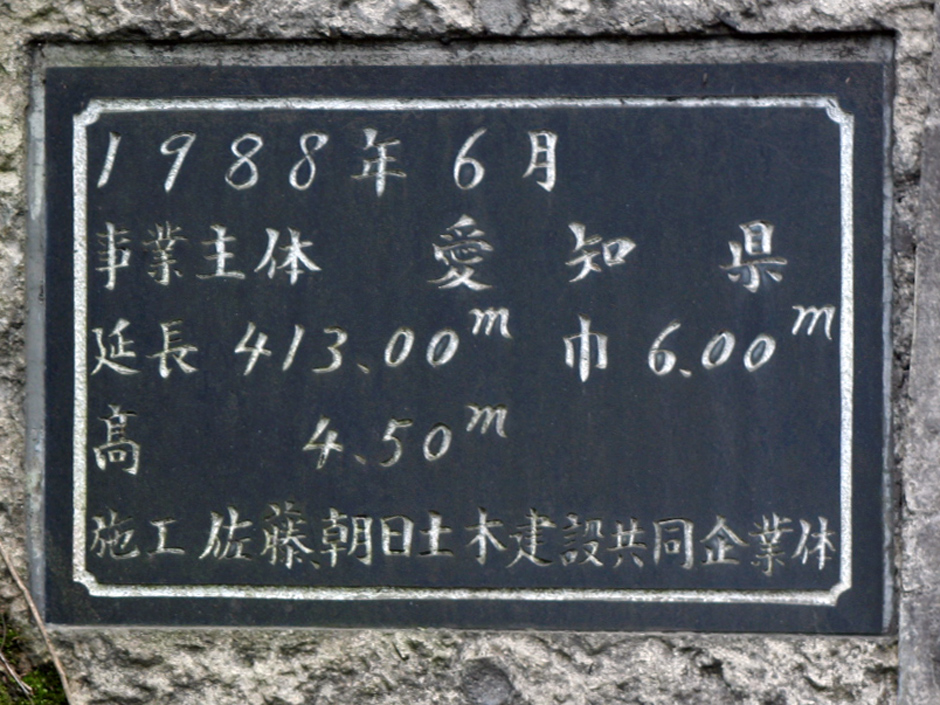 1988年 6月
事業主体 愛知県
延長 413.00m 巾 6.00m
髙 4.50m
施工 佐藤朝日土木建設共同企業体